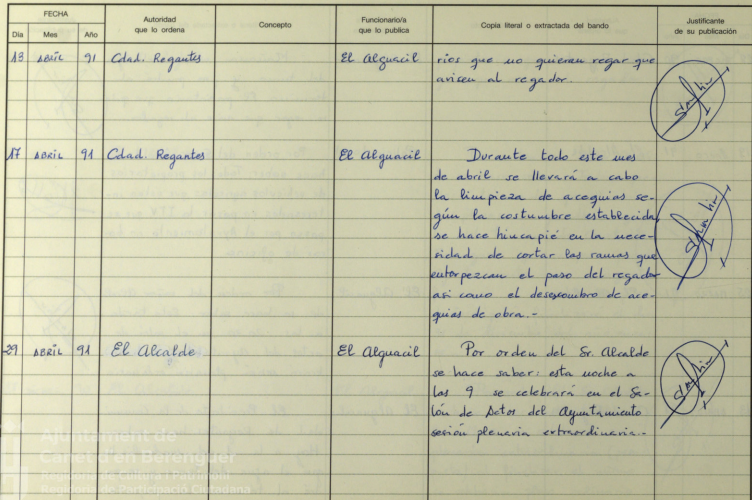 FECHA
Día Mes Año
Autoridad
que lo ordena
Concepto
Funcionario/a
que lo publica
Copia literal o extractada del bando
Justificante
de su publicación
13 ABRIL 91 Cdad. Regantes El Alguacil rios que no quieran regar que
avisen al regador.
17 ABRIL 91 Cdad. Regantes El Alguacil Durante todo este mes
de abril se llevará a cabo
la limpieza de acequias se-
gún la costumbre establecida,
se hace hincapié en la nece-
sidad de cortar las ramas que
entorpezcan el paso del regador
asi como el desescombro de ace-
quias de obra.-
29 ABRIL 91 El Alcalde El Alguacil Por orden del Sr. Alcalde
se hace saber: esta noche a
las 9 se celebrará en el Sa-
lón de Actos del Ayuntamiento
sesión plenaria extraordinaria.-
Ajuntament de
Canet d'en Berenguer
Regidoria de Cultura i Patrimoni
Regidoria de Participació Ciutadana